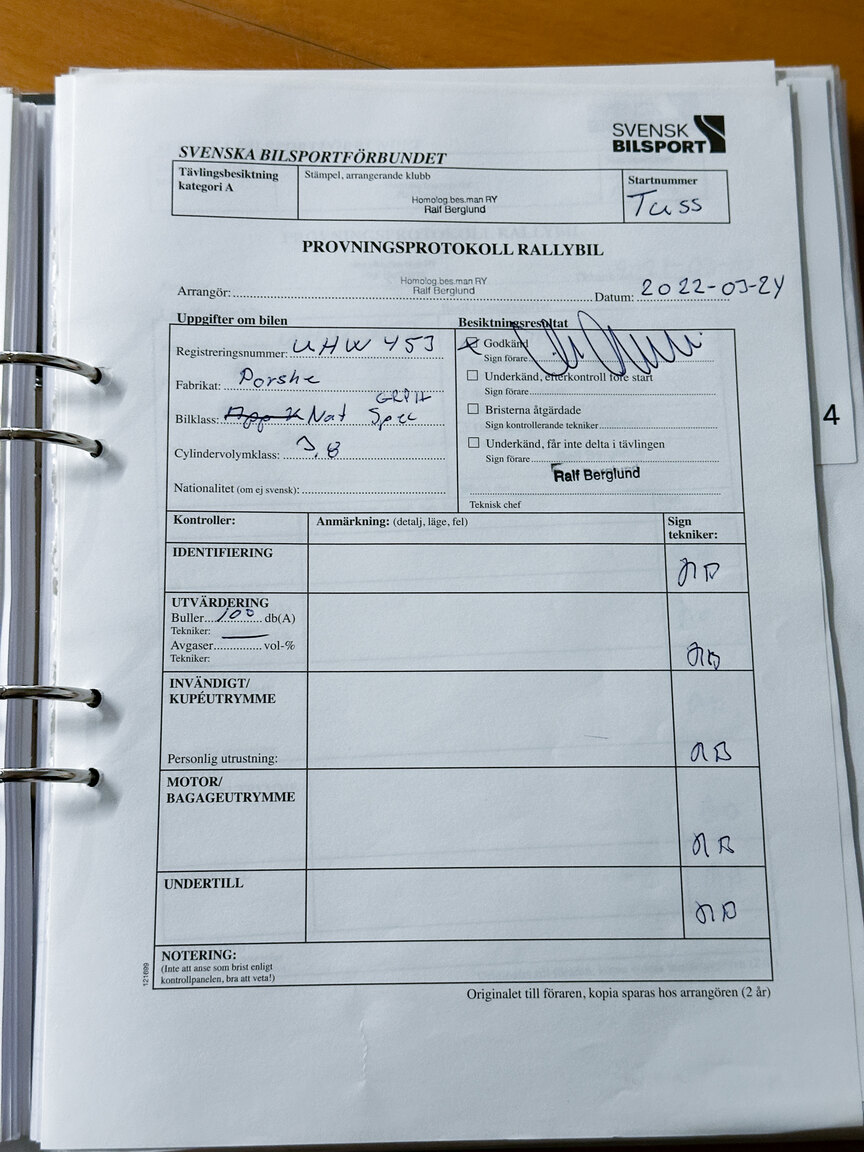 SVENSK
BILSPORT
SVENSKA BILSPORTFÖRBUNDET
Tävlingsbesiktning
kategori A
Stämpel, arrangerande klubb
Homolog.bes.man RY
Ralf Berglund
Startnummer
Tuss
PROVNINGSPROTOKOLL RALLYBIL
Homolog.bes.man RY
Ralf Berglund
Arrangör: Datum: 2022-03-24
Uppgifter om bilen
Registreringsnummer: UHW 453
Fabrikat: Porshe
Bilklass: Nat Spec
Cylindervolymklass: 3,8
Nationalitet (om ej svensk):
Besiktningsresultat
Godkänd
Sign förare
Underkänd, efterkontroll före start
Sign förare
Bristerna åtgärdade
Sign kontrollerande tekniker
Underkänd, får inte delta i tävlingen
Sign förare
Ralf Berglund
Teknisk chef
4
Kontroller: Anmärkning: (detalj, läge, fel) Sign
tekniker:
IDENTIFIERING
UTVÄRDERING
Buller 100 db(A)
Tekniker:
Avgaser vol-%
Tekniker:
INVÄNDIGT/
KUPÉUTRYMME
Personlig utrustning:
MOTOR/
BAGAGEUTRYMME
UNDERTILL
NOTERING:
(Inte att anse som brist enligt
kontrollpanelen, bra att veta!)
121699
Originalet till föraren, kopia sparas hos arrangören (2 år)